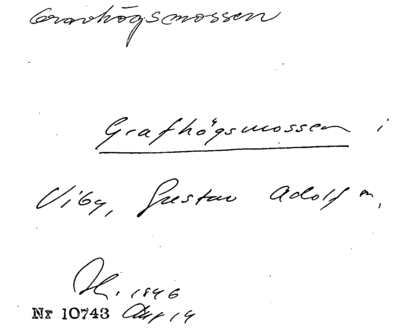 Gravhögsmossen
Grafhögsmossen i
Viby, Gustav Adolf
1846
Nr 10743